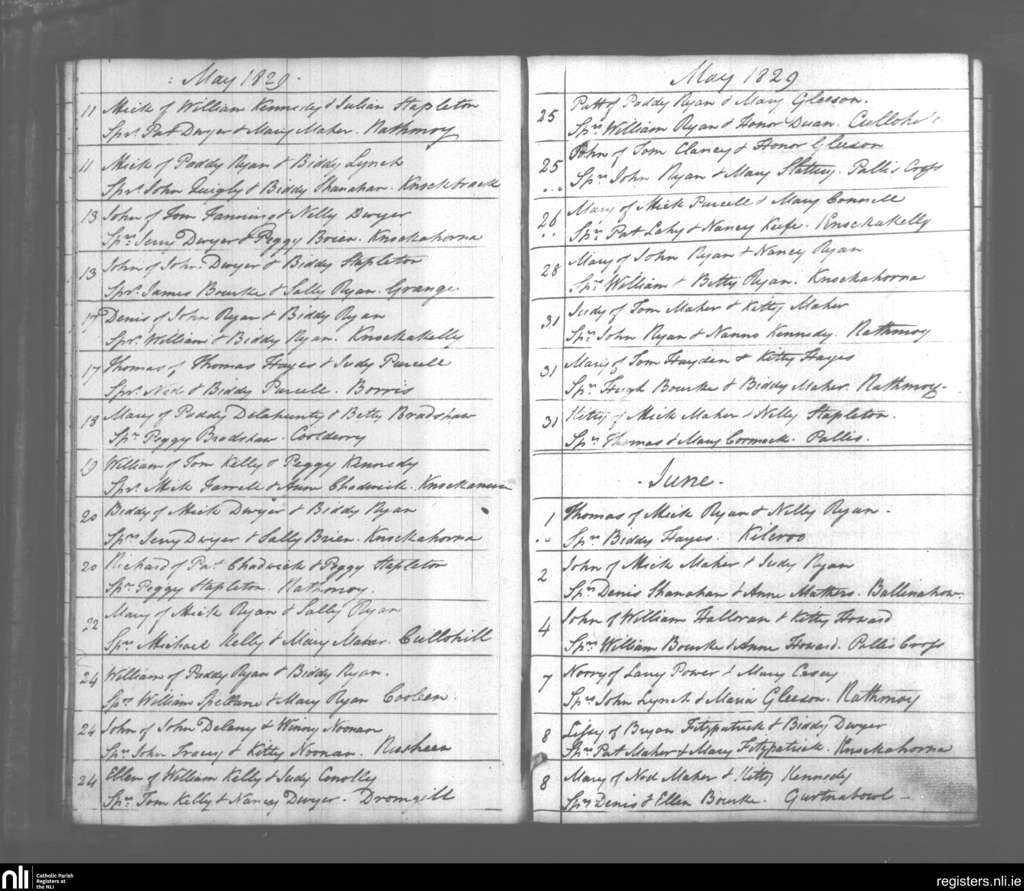 May 1829.
11 Mick of William Kennedy & Julian Stapleton
Sprs. Pat Dwyer & Mary Maher. Rathmoy
11 Mick of Paddy Ryan & Biddy Lynch
Sprs. John Quigly & Biddy Shanahan. Knockbrack
13 John of Tom Fanning & Nelly Dwyer
Sprs. Jerry Dwyer & Peggy Brien. Knockahorna
13 John of John Dwyer & Biddy Stapleton
Sprs. James Bourke & Sally Ryan. Grange
17 Denis of John Ryan & Biddy Ryan
Sprs. William & Biddy Ryan. Knockakelly
17 Thomas of Thomas Hayes & Judy Purcell
Sprs. Ned & Biddy Purcell. Borris
18 Mary of Paddy Delahunty & Betty Bradshaw
Spr. Peggy Bradshaw. Coolderry
19 William of Tom Kelly & Peggy Kennedy
Sprs. Mick Farrell & Ann Chadwick.
20 Biddy of Mick Dwyer & Biddy Ryan
Sprs Jerry Dwyer & Sally Brien. Knockahorna
20 Richard of Pat Chadwick & Peggy Stapleton
Spr. Peggy Stapleton. Rathmoy.
22 Mary of Mick Ryan & Sally Ryan
Sprs. Michael Kelly & Mary Maher. Cullohill
24 William of Paddy Ryan & Biddy Ryan.
Sprs William Spellane & Mary Ryan Cooleen.
24 John of John Delany & Winny Noonan
Sprs. John Tracey & Kitty Noonan. Rusheen
24 Ellen of William Kelly & Judy Conolly
Sprs. Tom Kelly & Nancy Dwyer. Dromgill
May 1829
25 Patt of Paddy Ryan & Mary Gleeson.
Sprs. William Ryan & Honor Duan.
25 John of Tom Clancy & Honor Gleeson
Sprs John Ryan & Mary Slattery. Pallis Cross
26 Mary of Mick Purcell & Mary Connell
Sprs. Pat Lahy & Nancy Keefe. Knockakelly
28 Mary of John Ryan & Nancy Ryan
Sprs. William & Betty Ryan. Knockahorna
31 Judy of Tom Maher & Kitty Maher
Sprs John Ryan & Nanno Kennedy. Rathmoy
31 Mary of Tom Hayden & Kitty Hayes
Sprs. Hugh Bourke & Biddy Maher. Rathmoy.
31 Kitty of Mick Maher & Nelly Stapleton.
Sprs Thomas & Mary Cormack. Pallis.
June.
1 Thomas of Mick Ryan & Nelly Ryan.
Spr Biddy Hayes. Kilcroo
2 John of Mick Maher & Judy Ryan
Sprs Denis Shanahan & Anne Mathers. Ballinahow.
4 John of William Halloran & Kitty Howard
Sprs William Bourke & Anne Howard. Pallis Cross
7 Norry of Larry Power & Mary Casey
Sprs John Lynch & Maria Gleeson. Rathmoy
8 of Bryan Fitzpatrick & Biddy Dwyer
Sprs Pat Maher & Mary Fitzpatrick. Knockahorna
8 Mary of Ned Maher & Kitty Kennedy
Sprs Denis & Ellen Bourke. Gurtnabowl
nli
Catholic Parish
Registers at
the NLI
registers.nli.ie